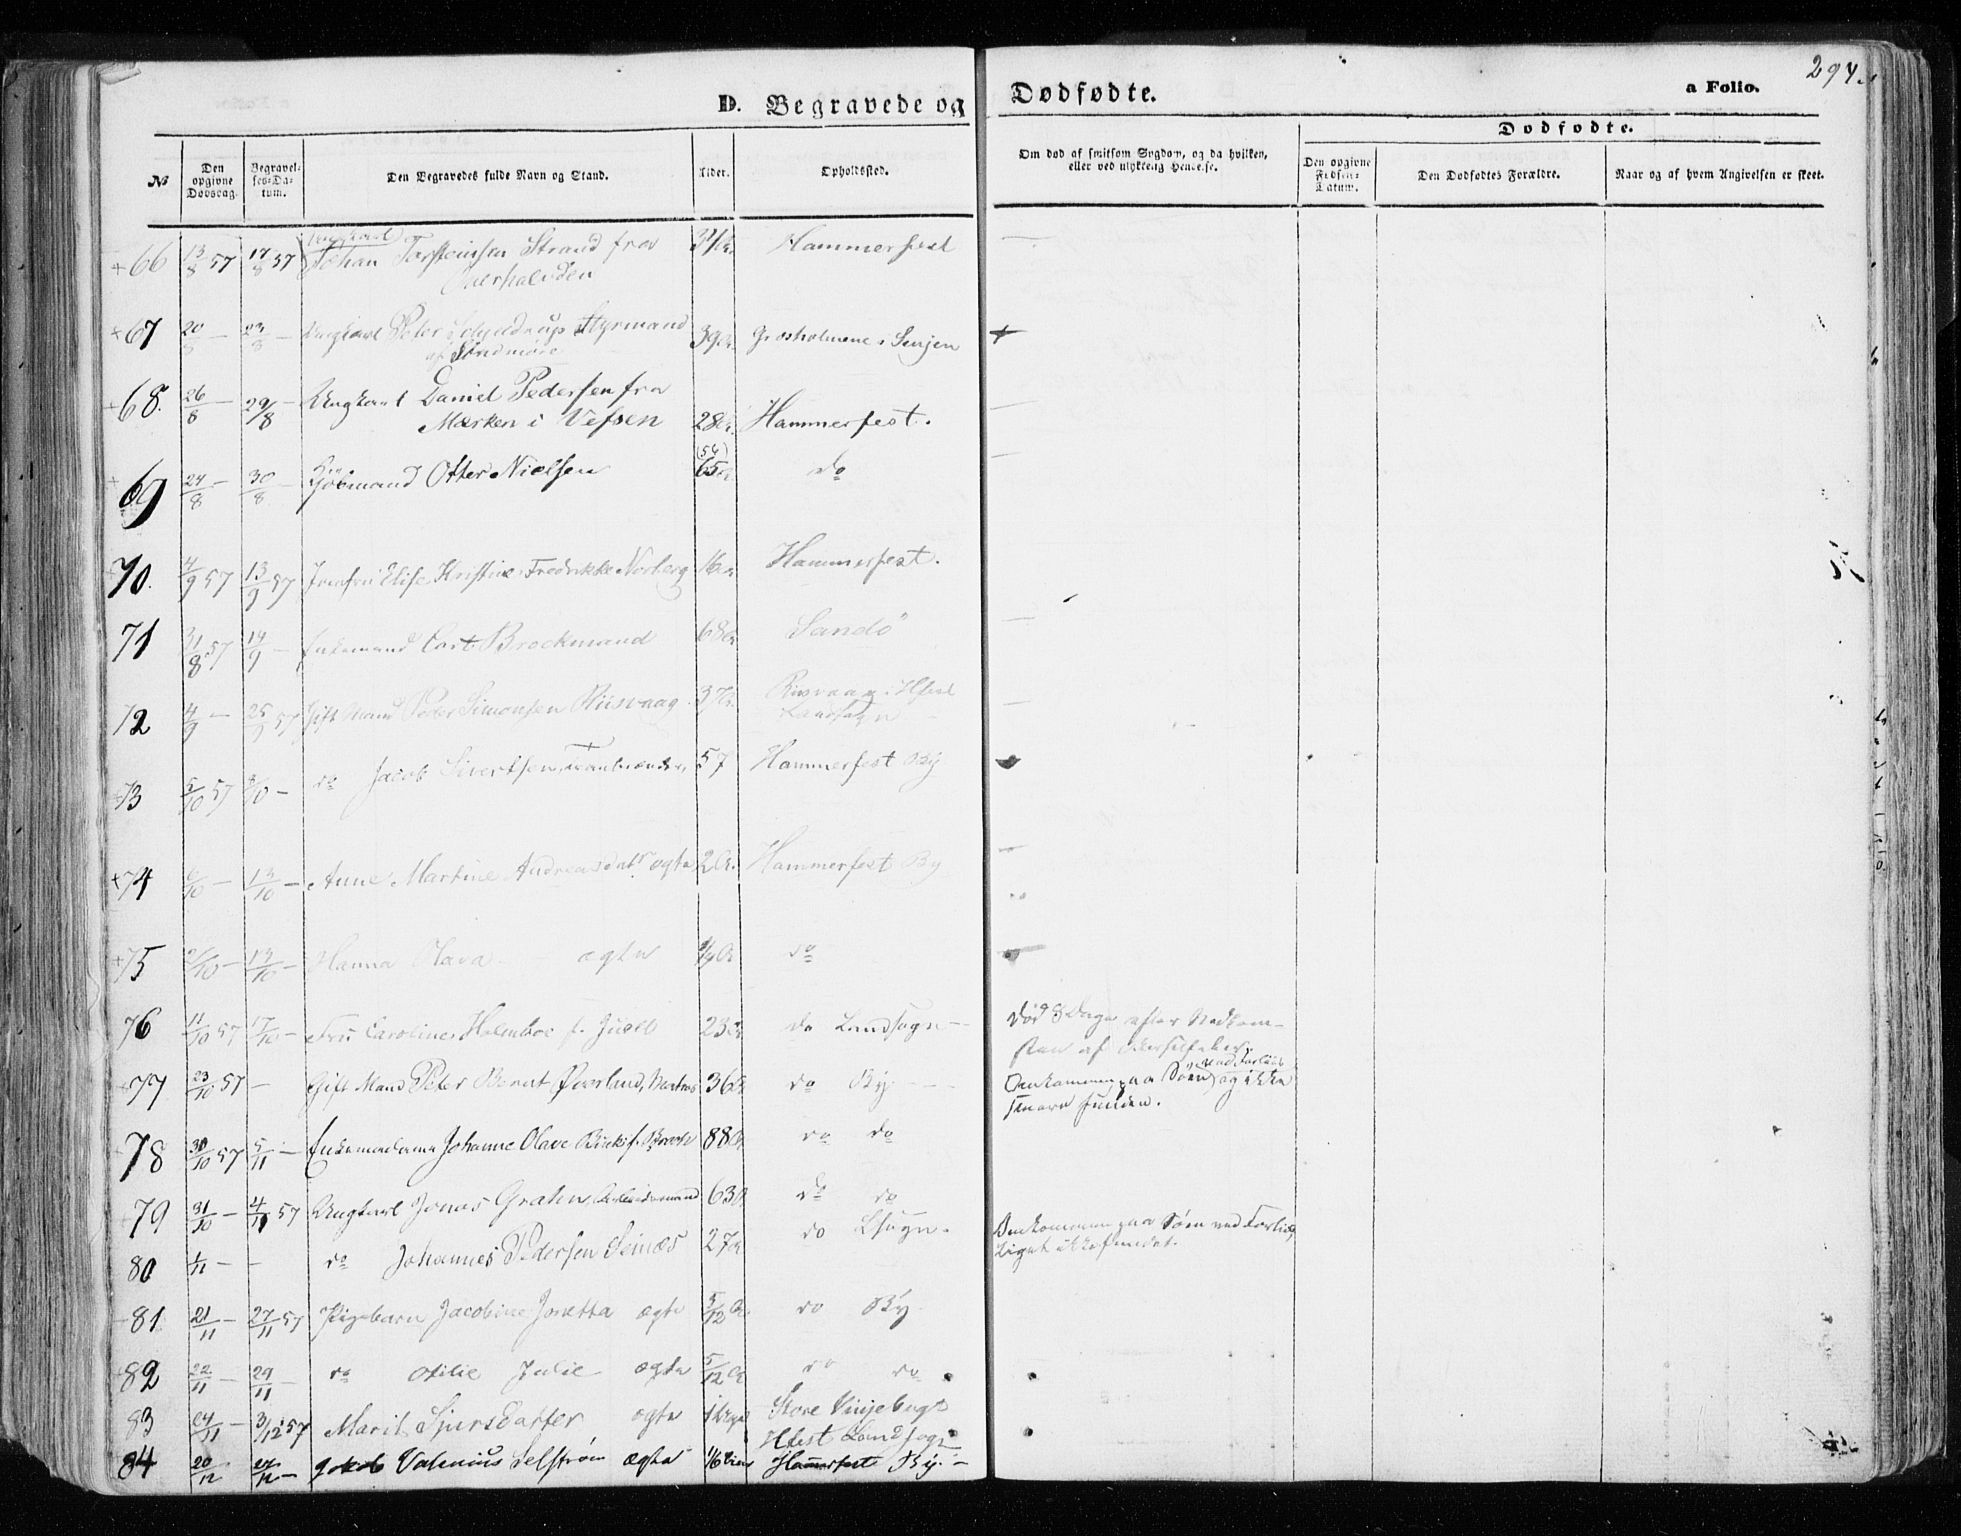 294.
D. Begravede og Dødfødte.
a Folio.
No
Den opgivne Dødsdag.
Begravelses-Datum.
Den Begravedes fulde Navn og Stand.
Alder.
Opholdssted.
Om død af smitsom Sygdom, og da hvilken, eller ved ulykkelig Hendelse.
Dødfødte.
Den opgivne Fødsels-Datum.
Den Dødfødtes Forældre.
Naar og af hvem Angivelsen er skeet.
66 13/8 57 17/8 57 Ungkarl Johan Torsteinsen Strand fra Hammerfest
67 20/8 — 23/8 — Ungkarl Peter Styrmand 39 Senjen
af Søndmøre
68. 26/8 29/8 — Ungkarl Daniel Pedersen fra
Marken i Vefsen 28 Hammerfest.
69 24/8 — 30/8 — Otter Nielsen (56) 65 do
70. 4/9 57 13/9 57 Jomfru Elise Kristine Fredrikke Norberg 16 Hammerfest.
71 31/8 57 14/9 — Enkemand Carl Brockmand 68 Sandö
72 4/9 — 25/9 57 Gift Mand Peder Simonsen Riisvaag 37 Riisvaag i Hfest
Landsogn
73 5/10 57 /10 — do Jacob Sivertsen, Tranbrænder, 57 Hammerfest By
74 6/10 — 13/10 — Anne Martine Andreasdatr ægte 2 Hammerfest By
75 /10 — 13/10 — Hanna Olava — ægte do
76 11/10 57 17/10 — Fru Caroline Holmboe f. Juell 23 do Landsogn — Død 8 Dage efter Nedkom-
sten af
77 23/10 57 — Gift Mand Peter Bernt 36 do By — — Omkommen paa Søen ved Forliis og ikke
senere funden.
78 30/10 57 5/11 — Enkemadame Johanne Olave 88 do do
79 31/10 — 4/11 57 Ungkarl Jonas Grahn Arbeidsmand 63 do do
80 1/11 — — do Johannes Pedersen Seinæs 27 do Lsogn. Omkommen paa Søen ved Forliis,
Liget ikke fundet.
81 21/11 — 27/11 57 Pigebarn Jacobine Jonetta ægte 5/12 do By
82 22/11 — 29/11 — do Otilie Julie ægte 5/12 do do
83 24/11 — 3/12 57 Marit Sjursdatter ægte Store
Hfest Landsogn
84 20/12 27/12 — Jakob Selström ægte 1/6 Hammerfest By. —